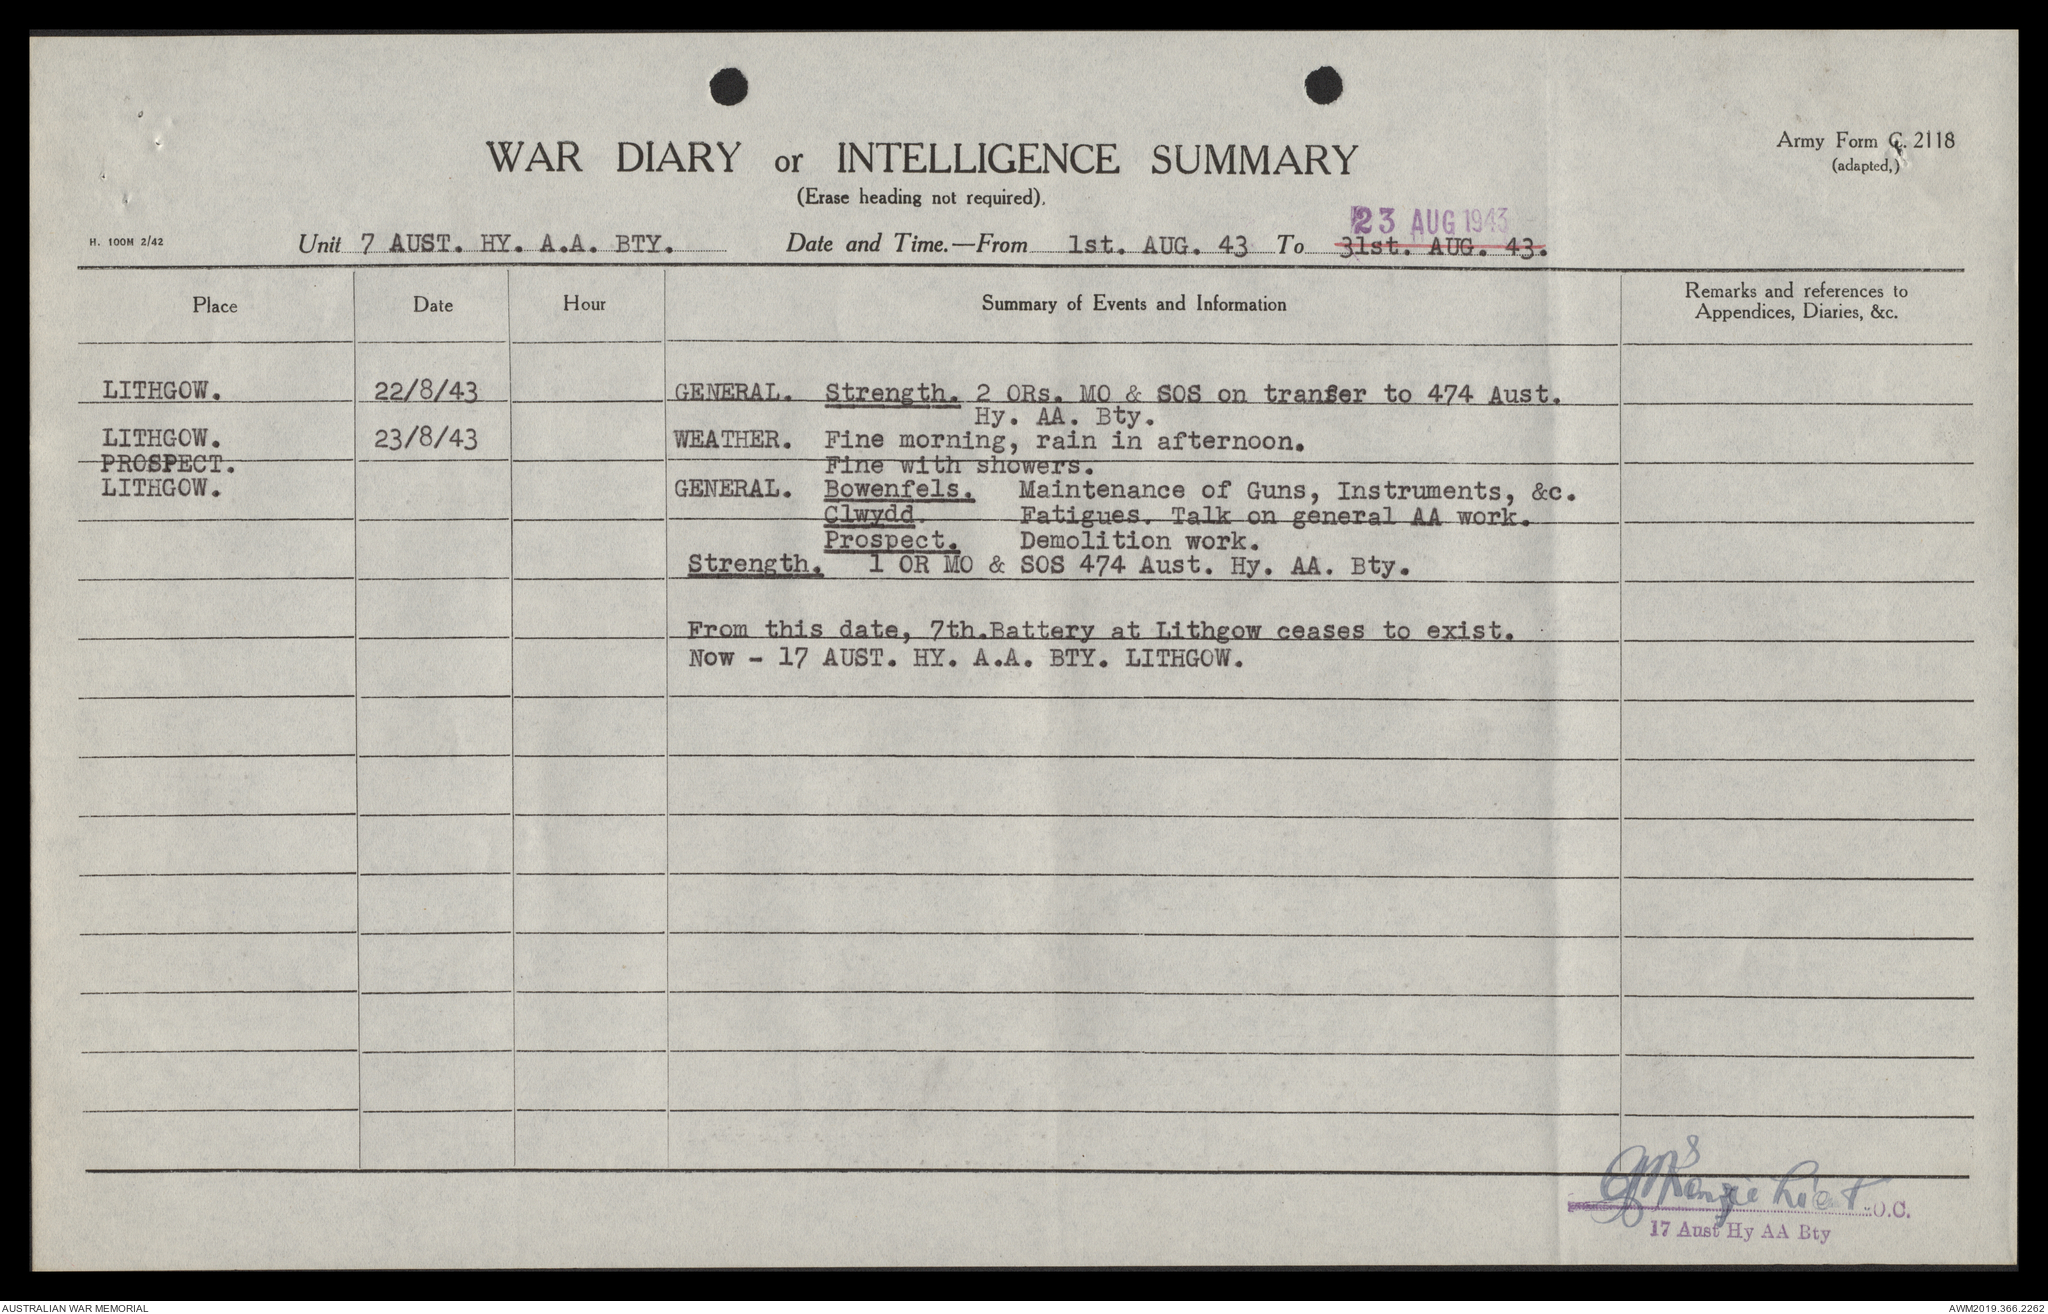 WAR DIARY or INTELLIGENCE SUMMARY
Army Form C. 2118
(Erase heading not required).
(adapted.)
23 AUG 1943
H. 100M 2/42
Unit 7 AUST. HY. A.A. BTY. Date and Time.—From 1st. AUG. 43 To 31st. AUG. 43.
Place Date Hour Summary of Events and Information Remarks and references to
Appendices, Diaries, &c.
LITHGOW. 22/8/43 GENERAL. Strength. 2 ORs. MO & SOS on tranfer to 474 Aust.
Hy. AA. Bty.
LITHGOW. 23/8/43 WEATHER. Fine morning, rain in afternoon.
PROSPECT. Fine with showers.
LITHGOW. GENERAL. Bowenfels. Maintenance of Guns, Instruments, &c.
Clwydd. Fatigues. Talk on general AA work.
Prospect. Demolition work.
Strength. 1 OR MO & SOS 474 Aust. Hy. AA. Bty.
From this date, 7th.Battery at Lithgow ceases to exist.
Now - 17 AUST. HY. A.A. BTY. LITHGOW.
Lieut O.C.
17 Aust Hy AA Bty
AUSTRALIAN WAR MEMORIAL
AWM2019.366.2262